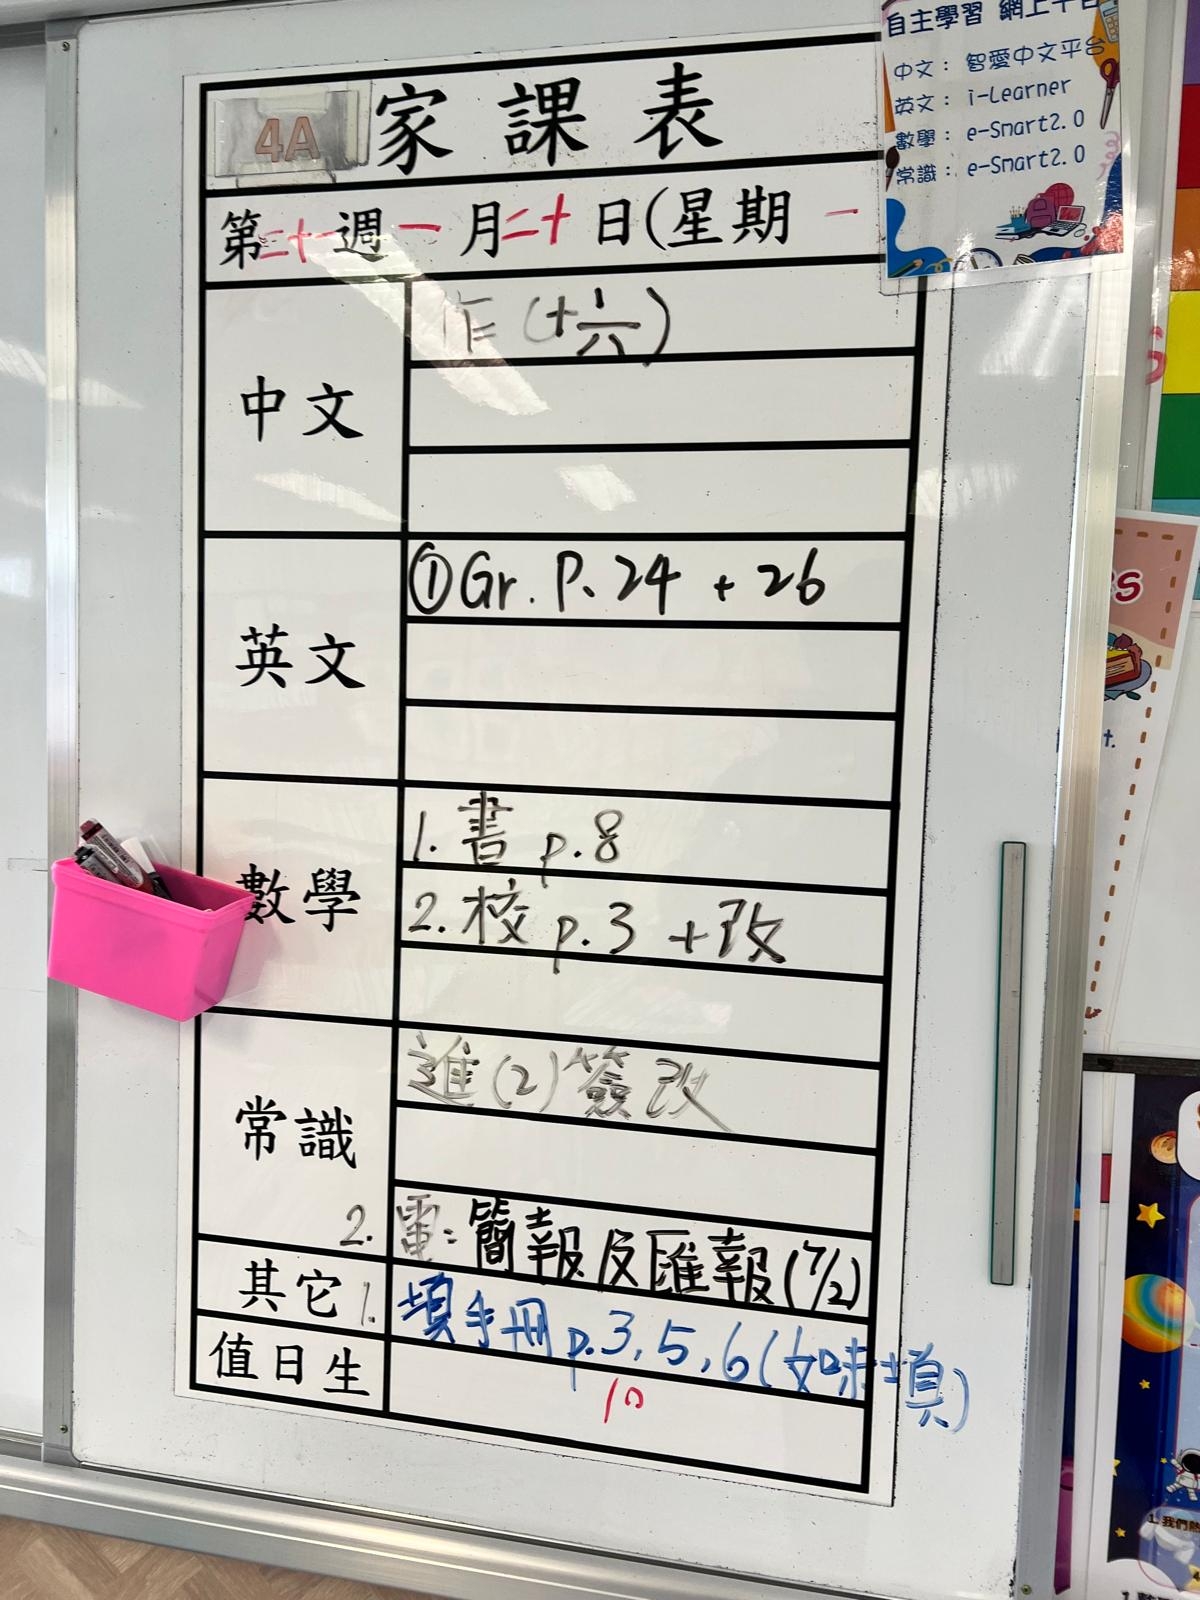 自主學習 網上平台
中文： 智愛中文平台
英文： i-Learner
數學： e-Smart2.0
常識： e-Smart2.0
4A 家課表
第二十一週一月二十日(星期一
中文
作 (十六)
英文
①Gr. P. 24 + 26
數學
1. 書 p.8
2. 校 p.3 + 改
常識
進(2)簽改
2. 電：簡報及匯報(7/2)
其它 1. 填手冊 p.3, 5, 6 (如未填)
值日生
10
1. 我們